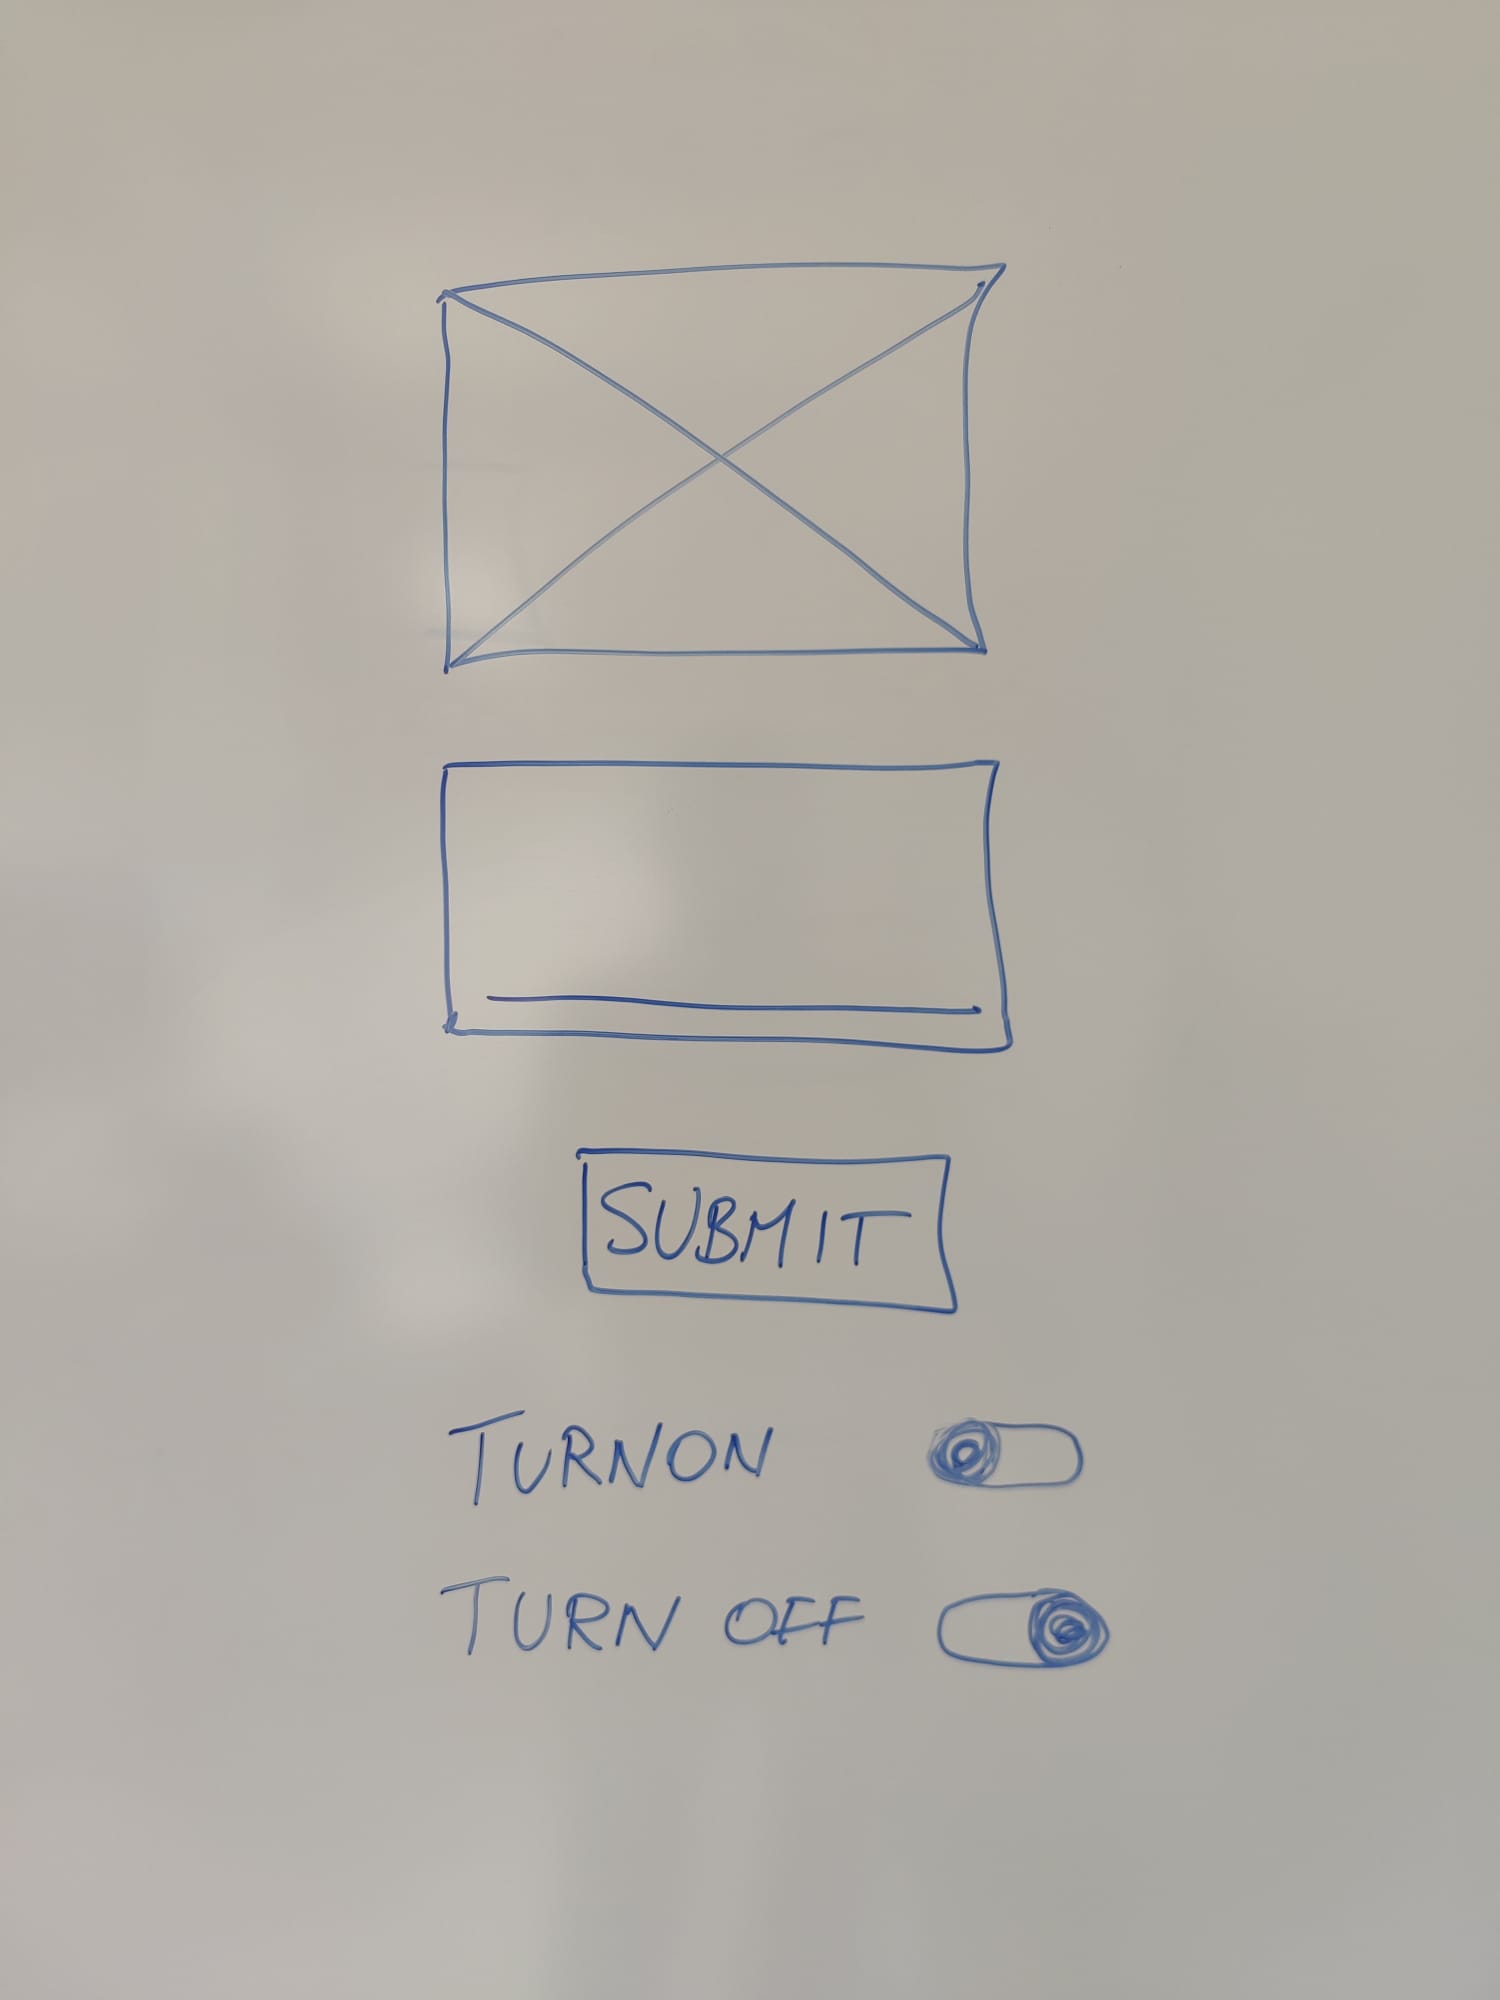 SUBMIT
TURNON
TURN OFF